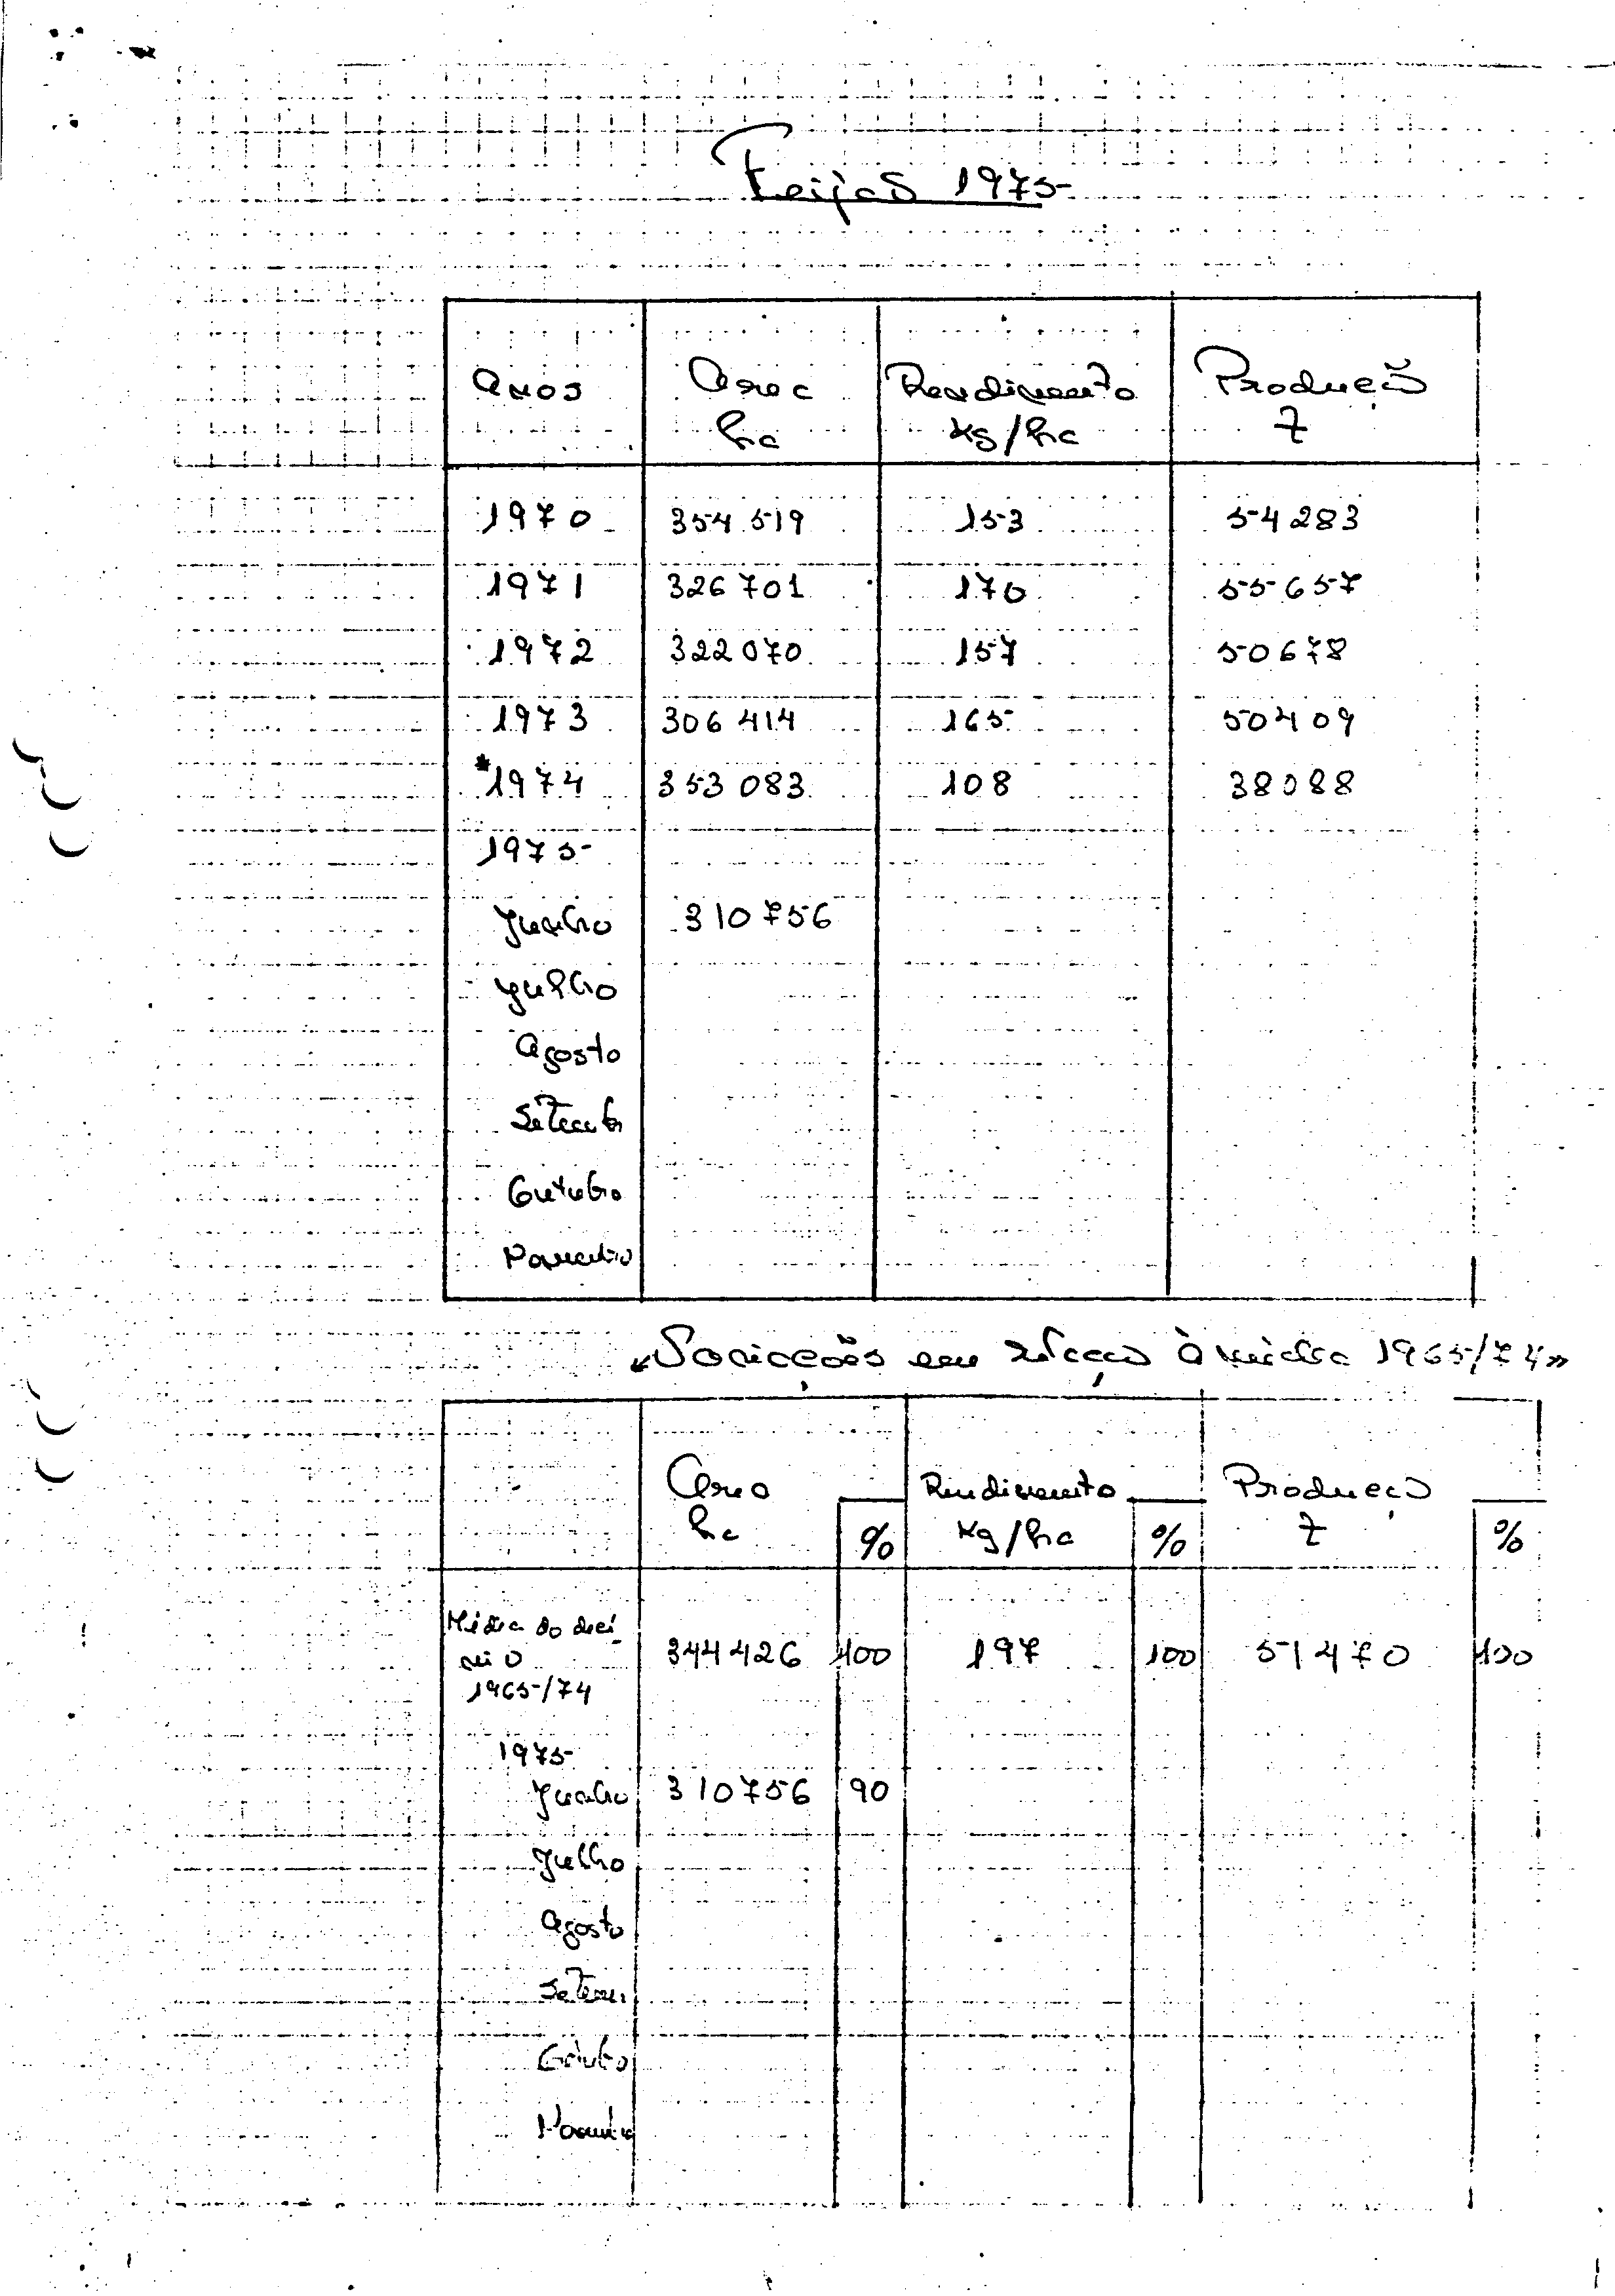 Feijão 1975
Anos Área Rendimento Produção
ha kg/ha T
1970 354 519 153 54 283
1971 326 701 170 55 657
1972 322 070 157 50 678
1973 306 414 165 50 409
*1974 353 083 108 38 088
1975
Junho 310 756
Julho
Agosto
Setemb
Outubro
Novembro
«Variações em relação à média 1965/74»
Área Rendimento Produção
ha % kg/ha % T %
Média do decé
nio 344 426 100 197 100 51 470 100
1965/74
1975
Junho 310 756 90
Julho
Agosto
Setem.
Outubro
Novembro